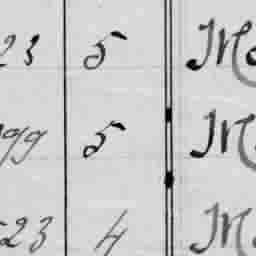 23 5 M
99 5 M
523 4 M